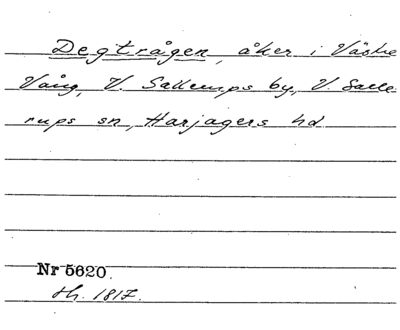 Degtrågen, åker i Västre
Vång, V. Sallerups by, V. Salle
rups sn, Harjagers hd
Nr 5620.
sh. 1817.